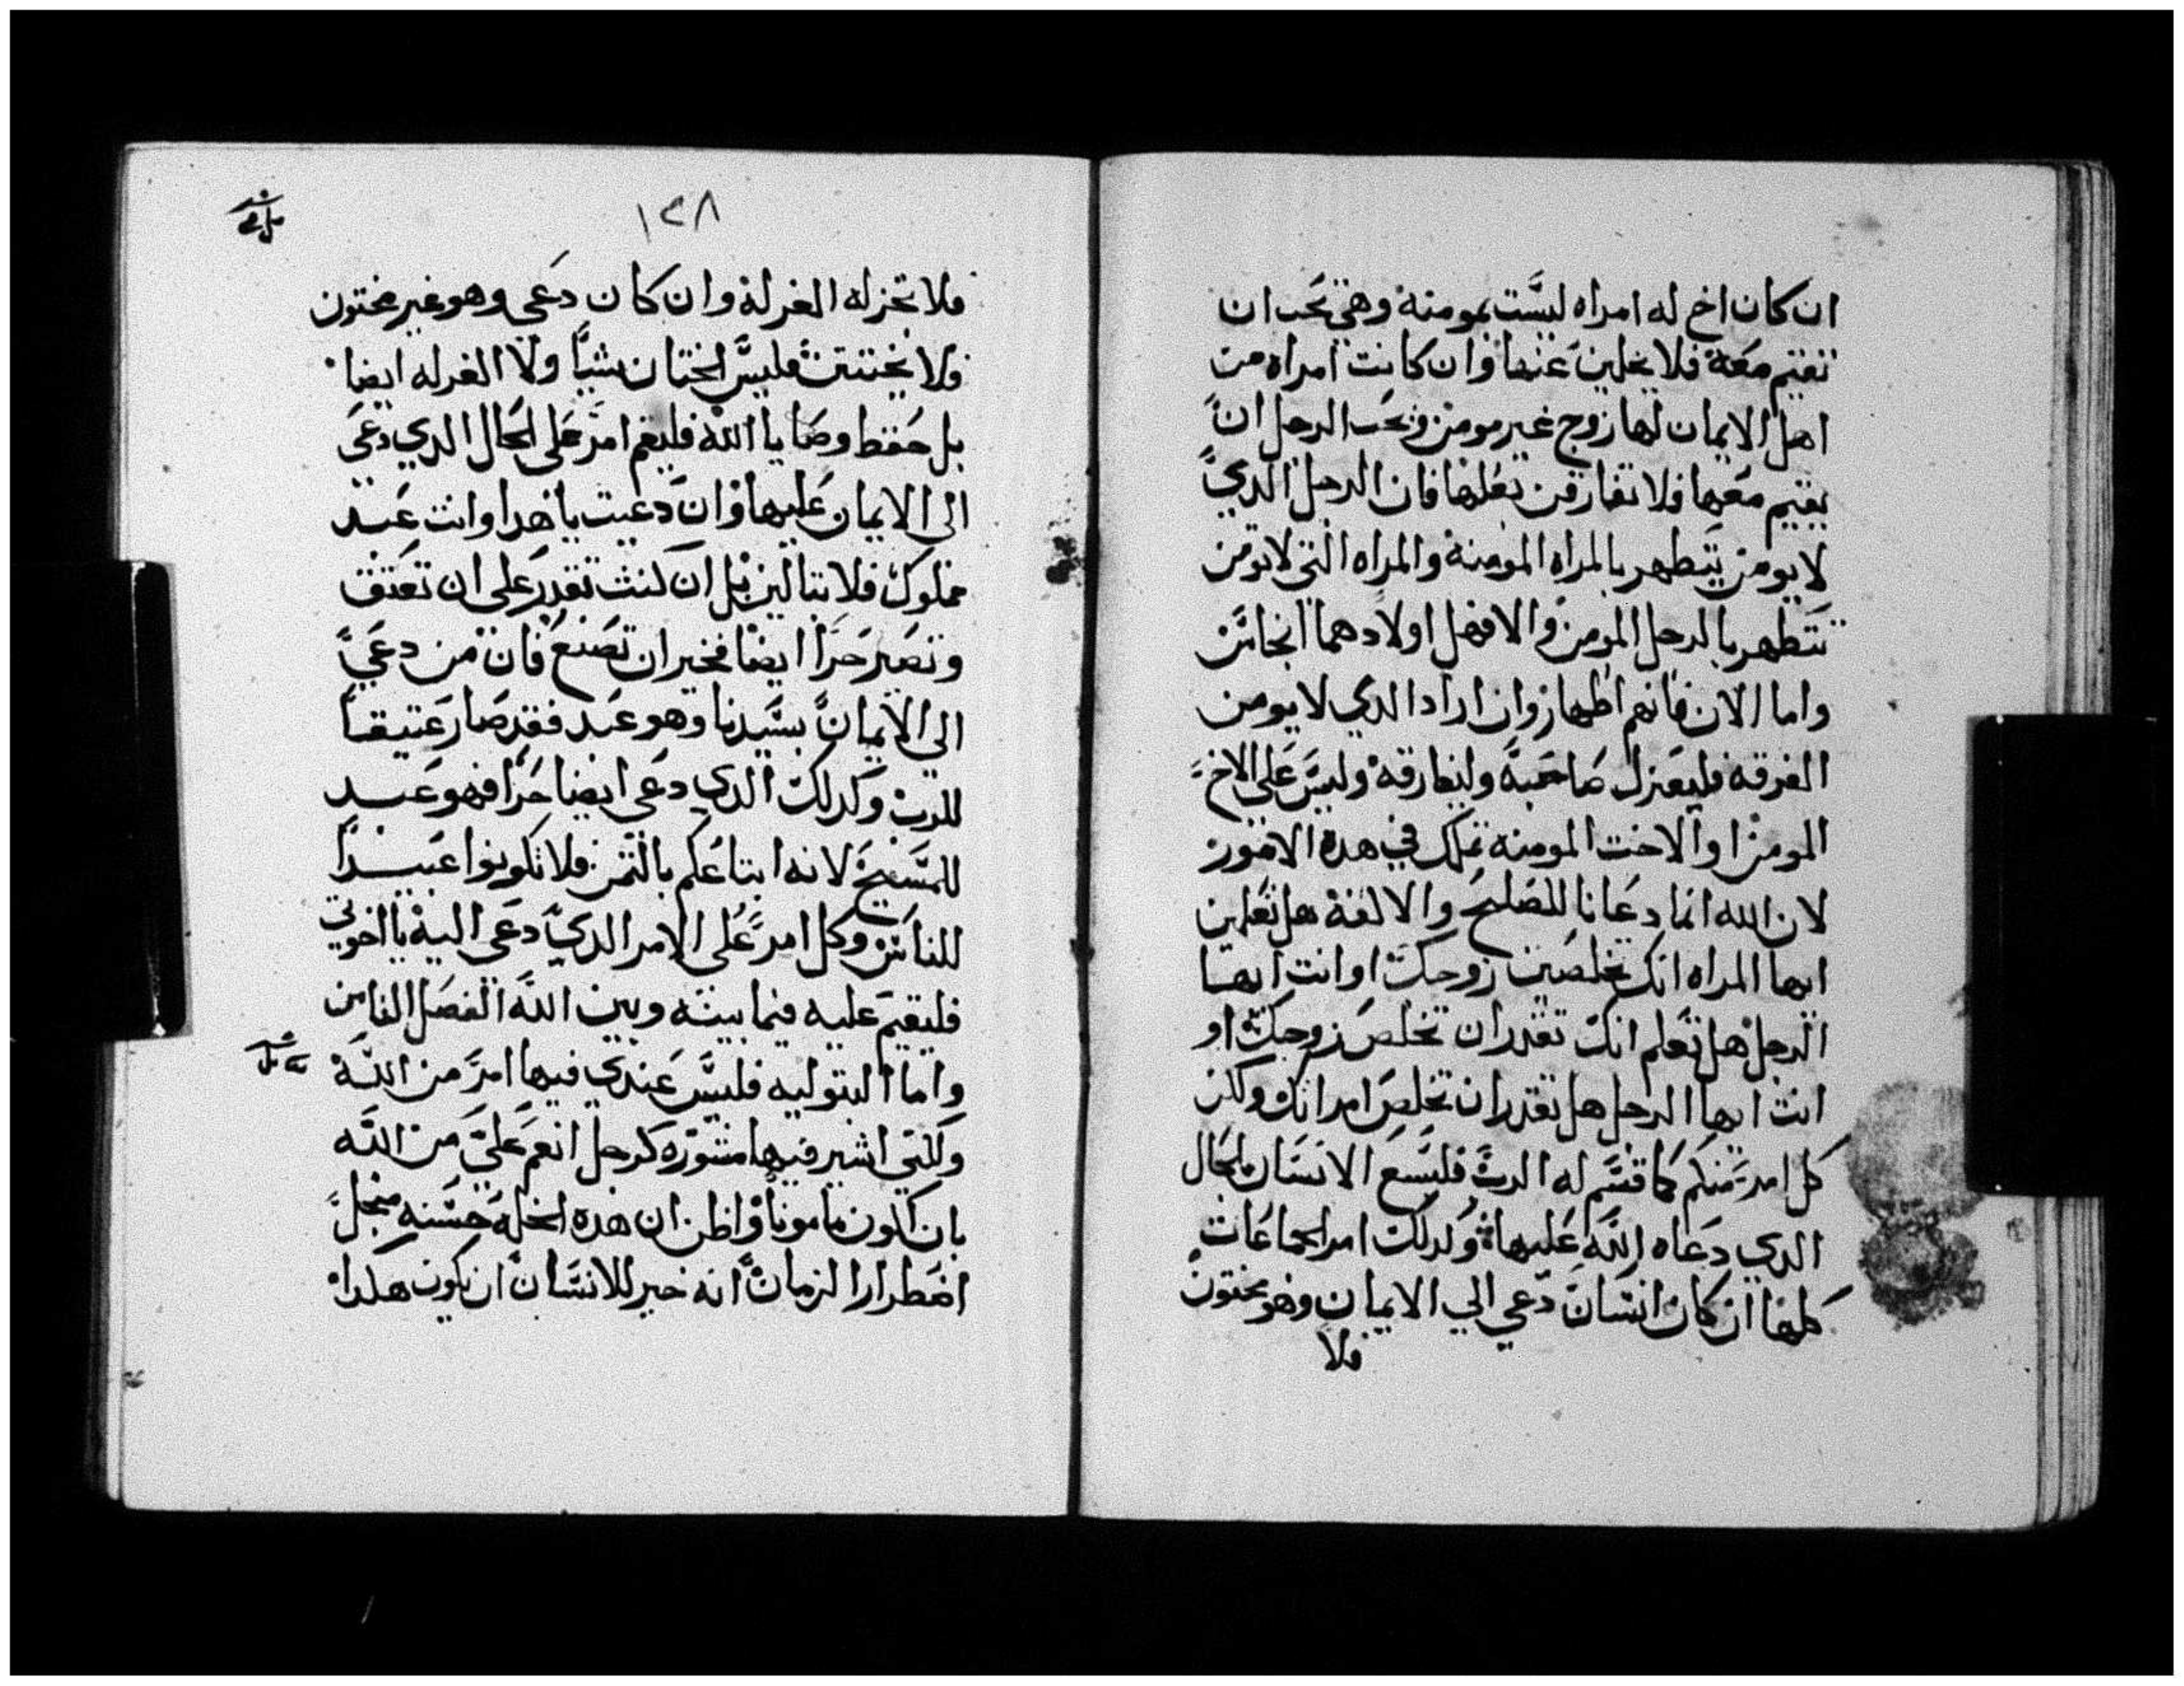 ان كان اخ له امراه ليست بمومنة وهي تحب ان
تقيم معه فلا يخلين عنها وان كانت امراه من
اهل الايمان لها زوج غير مومن ويحب الرجل ان
يقيم معها فلا تفارقن بعلها فان الرجل الدي
لا يومن يتطهر بالمراه المومنة والمراه التي لا تومن
تتطهر بالرجل المومن والا فهل اولادهما انجاس
واما الان فانهم اطهار وان اراد الدي لا يومن
الفرقه فليعتزل صاحبه وليفارقه وليس على الاخ
المومن او الاخت المومنه تملك في هده الامور
لان الله انما دعانا للصلح والالفة هل تعلمين
ايها المراه انك تخلصين زوجك او انت ايها
الرجل هل تعلم انك تقدر ان تخلص زوجك او
انت ايها الرجل هل تقدر ان تخلص امراتك ولكن
كل امر منكم كما قسم له الرب فليسع الانسان بالحال
الدي دعاه الله عليها وكدلك امر الجماعات
كلها ان كان انسان دعي الي الايمان وهو مختون
فلا
١٢٨
فلا تجز له الغرلة وان كان دعي وهو غير مختون
فلا يختتن فليس الختان شيا ولا الغرله ايضا
بل حفظ وصايا الله فليقم امر على الحال الدي دعي
الى الايمان عليها وان دعيت يا هدا وانت عبد
مملوك فلا تبالين بل ان كنت تقدر على ان تعتق
وتصير حرا ايضا فخير ان تصنع فان من دعي
الي الايمان بسيدنا وهو عبد فقد صار عتيقا
للرب وكدلك الدي دعي ايضا حرا فهو عبد
للمسيح لانه ابتاعكم بالثمن فلا تكونوا عبيدا
للناس وكل امر على الامر الدي دعي اليه يا اخوتي
فليقيم عليه فيما بينه وبين الله الفصل الثامن
واما البتوليه فليس عندي فيها امر من الله
ولكني اشير فيها مشورة كرجل انعم علي من الله
بان اكون مامونا واظن ان هده الخله حسنه من اجل
اضطرار الزمان انه خير للانسان ان يكون هكدا